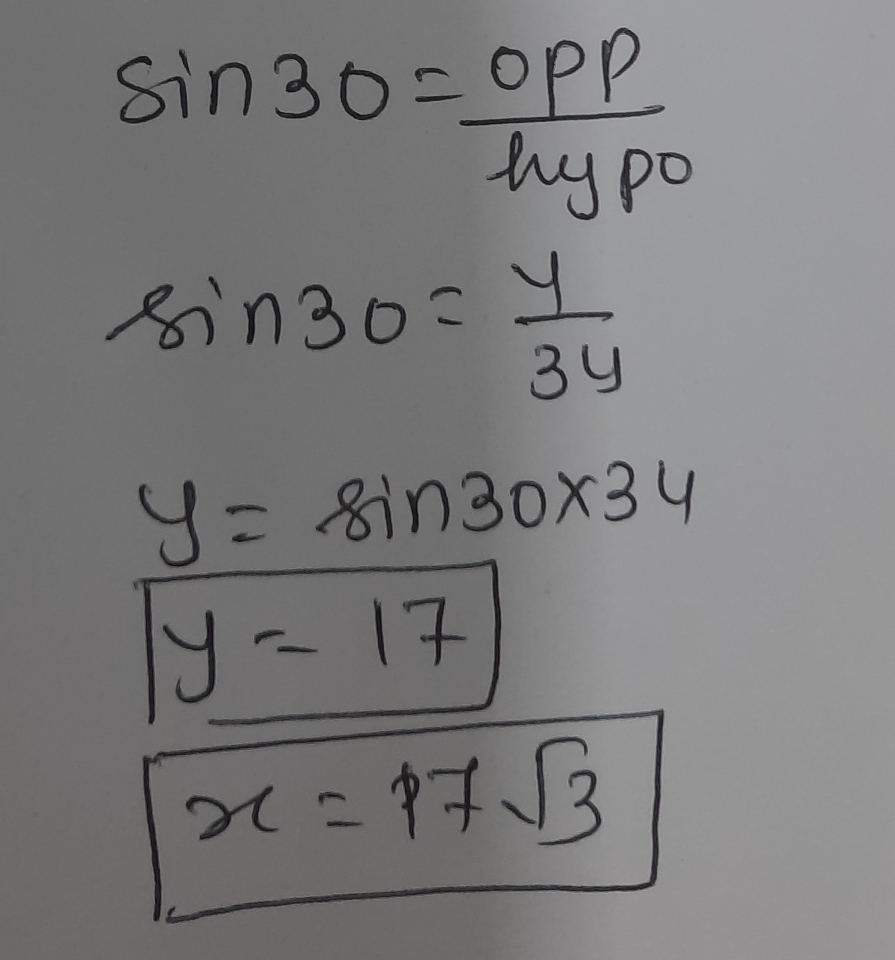 sin30 = opp/hypo
sin30 = y/34
y = sin30x34
y = 17
x = 17√3